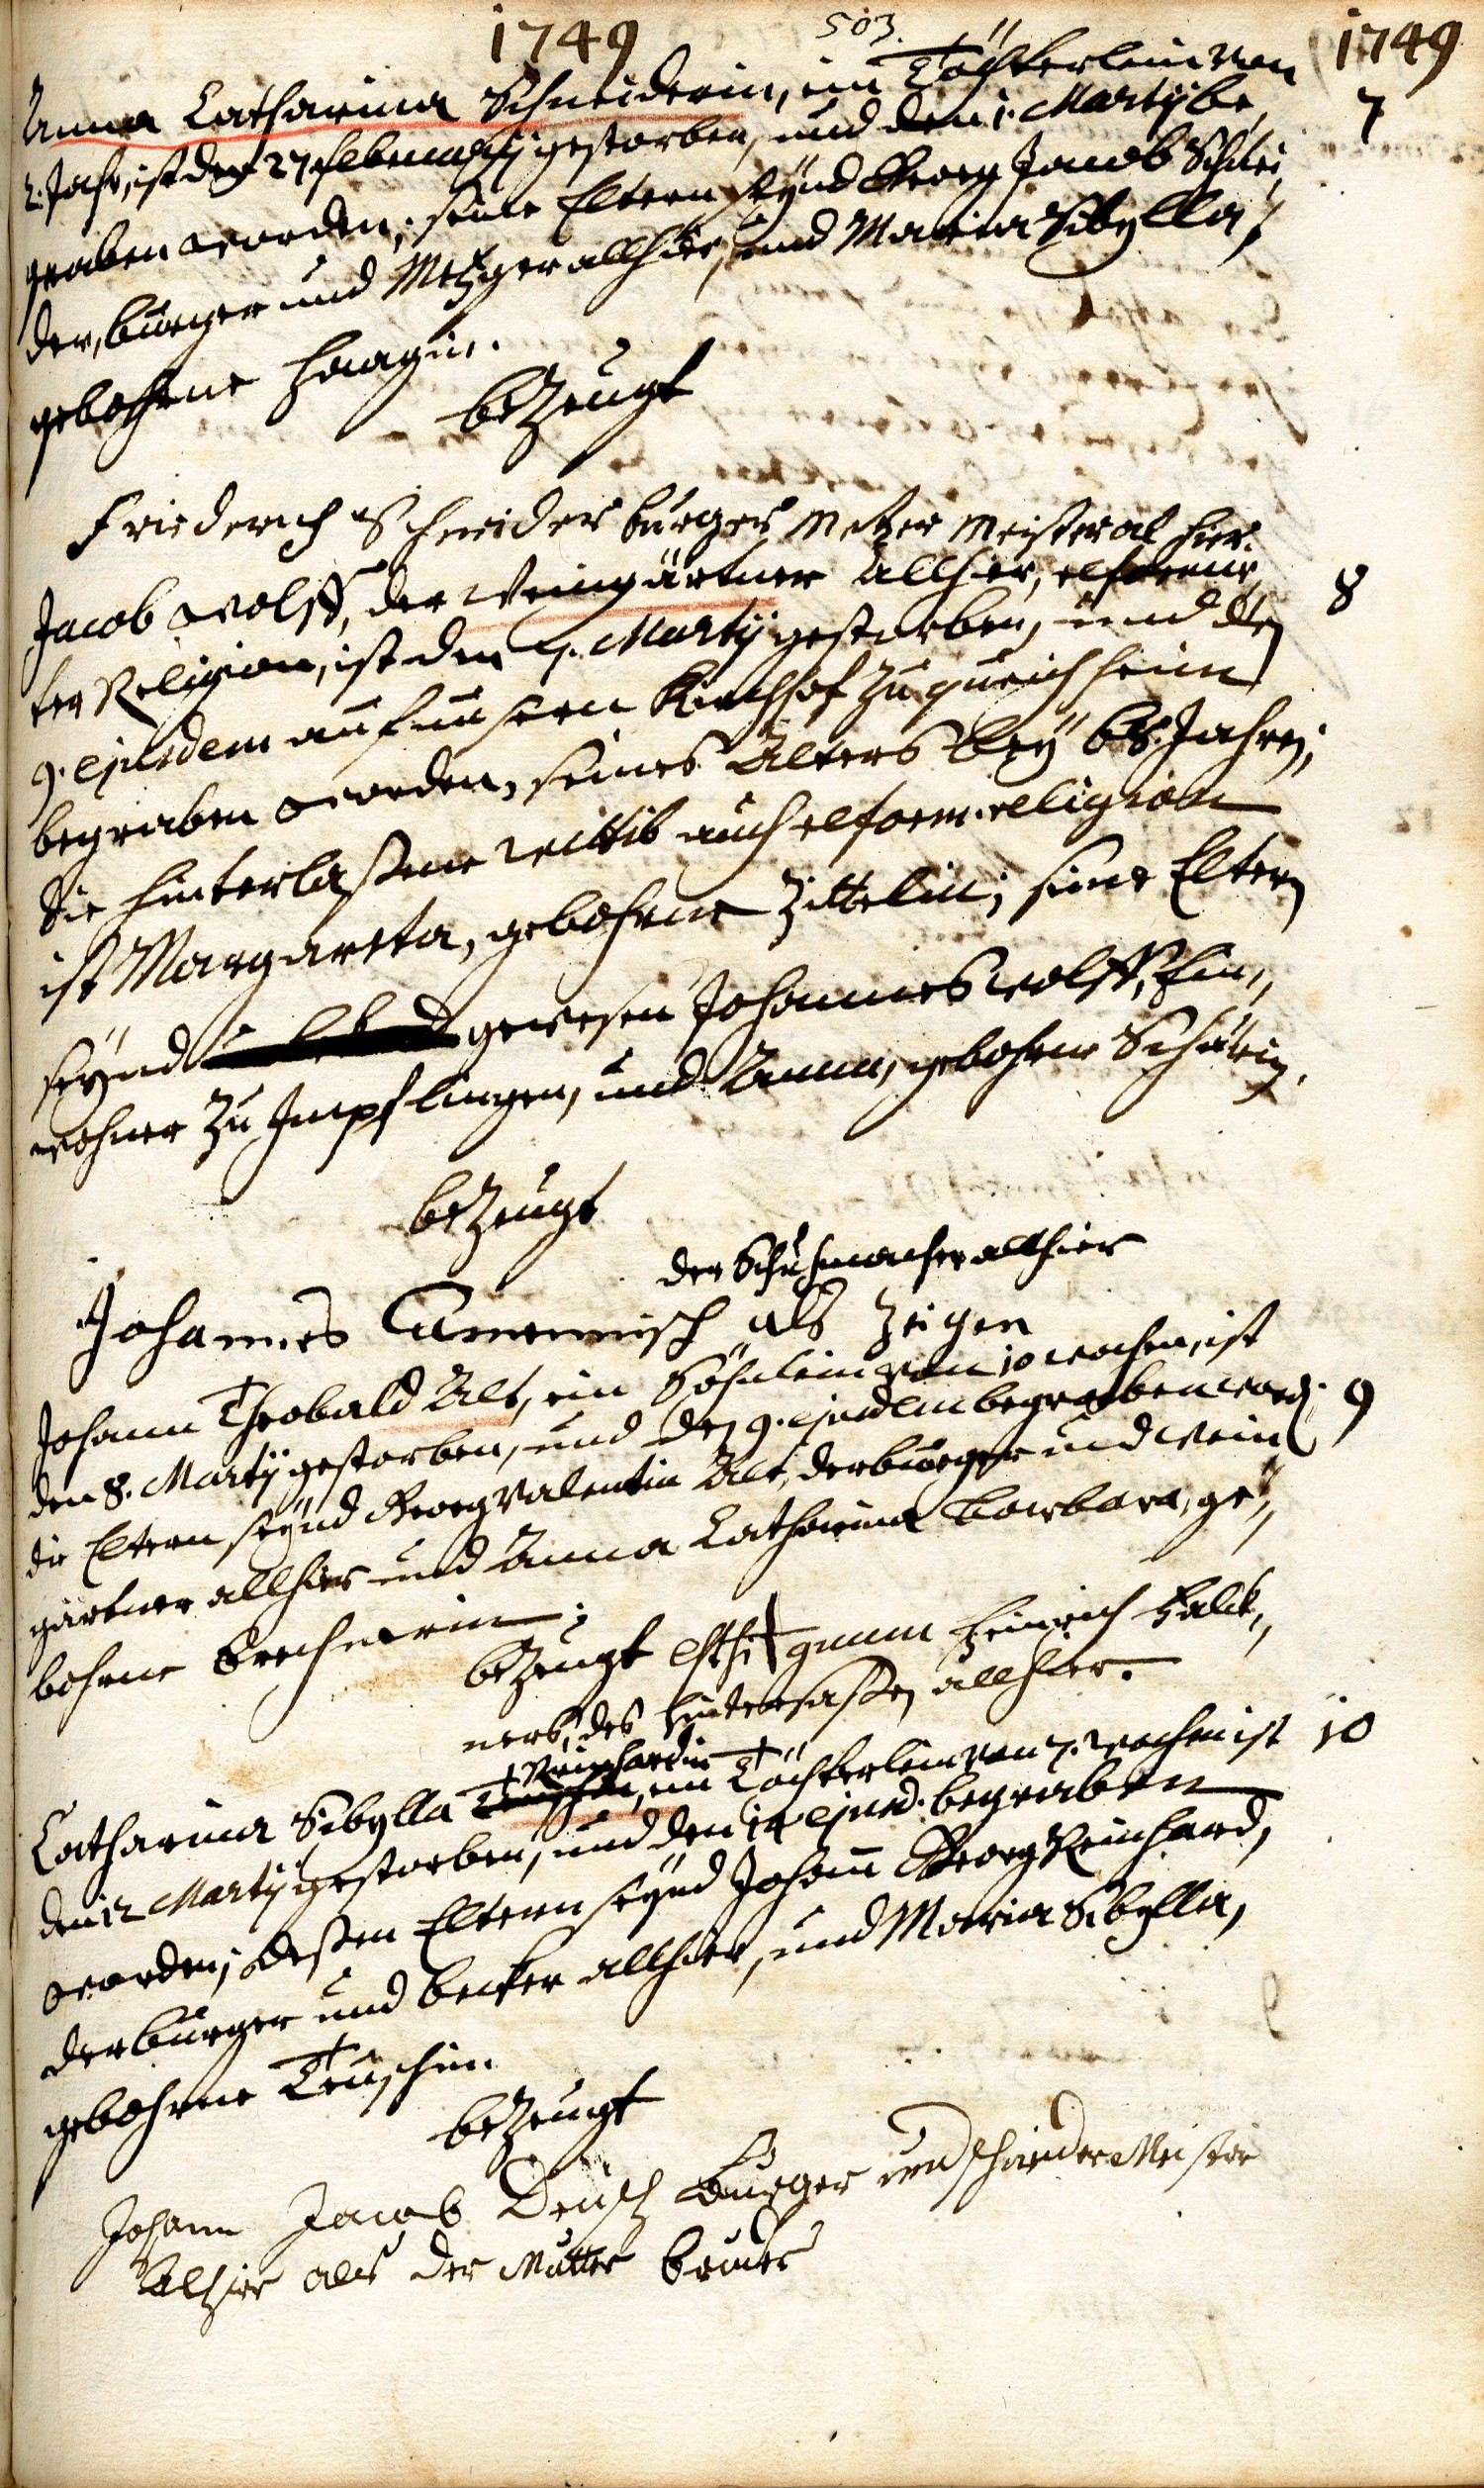 1749 503. 1749
Anna Catharina Schneiderin, ein Töchterlein von 7
2. Jahr, ist den 27 februarij gestorben, und den 1. Martij be,
graben worden; seine Eltern seynd Georg Jacob Schnei,
der, burger und Metzger allhier, und Maria Sibylla,
gebohrne Haagin.
bezeugt
Friederich Schneider burger Metzer Meister al hier.
Jacob Wolff, der Weingärtner allhier, reformir, 8
ter Religion, ist den 7. Martij gestorben, und den
9. ejusdem auf unsern Kirchhof zu queichheim
begraben worden, seines Alters bey 68. Jahren;
die hinterlaßene Wittib auch reform. religion
ist Margareta, gebohrne Zittelin; seine Eltern
seynd gewesen Johannes Wolff, Ein,,
wohner zu Impflingen, und Anna, gebohrne Schärin.
bezeugt
der Schuhmacher allhier
Johannes Camenisch als Zeigen
Johann Theobald Alt, ein Söhnlein von 10 wochen, ist
den 8. Martij gestorben, und den 9. ejusdem begraben word. 9
die Eltern seynd Georg Valentin Alt, der burger und wein
gärtner allhier und Anna Catharina Barbara, ge,,
bohrne Brechnerin.
bezeugt genum Heinrich Falck,,
ners, des Hintersaßen allhier.
Reinhardin
Catharina Sibylla Teuschin, ein Töchterlein von 7. wochen ist 10
den 12 Martij gestorben, und den 14 ejusd. begraben
worden; deßen Eltern seynd Johann Georg Reinhard,
der burger und becker allhier, und Maria Sibylla,
gebohrne Teuschin.
bezeugt
Johann Jacob Deusch Burger und schneider Meister
Alhier als der Mutter bruder